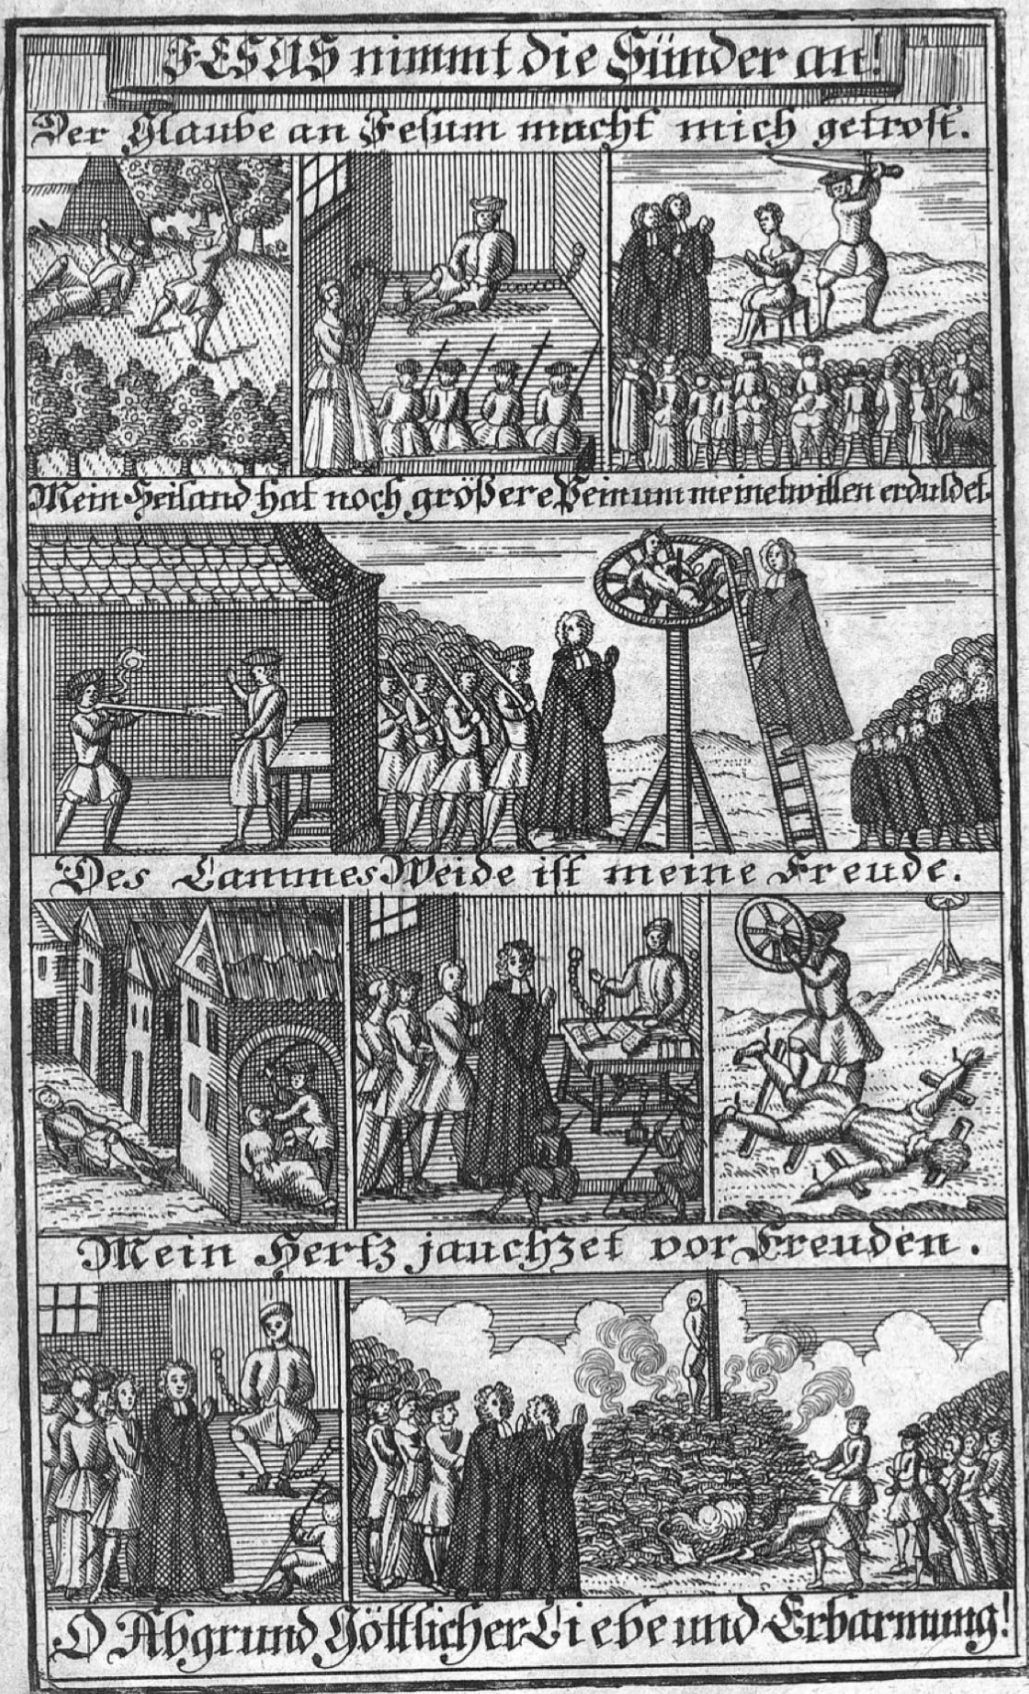 JESUS nimmt die Sünder an!
Der Glaube an Jesum macht mich getrost.
Mein Heiland hat noch größere Pein um meinetwillen erduldet.
Des Lammes Weide ist meine Freude.
Mein Hertz jauchzet vor Freuden.
O Abgrund Göttlicher Liebe und Erbarmung!